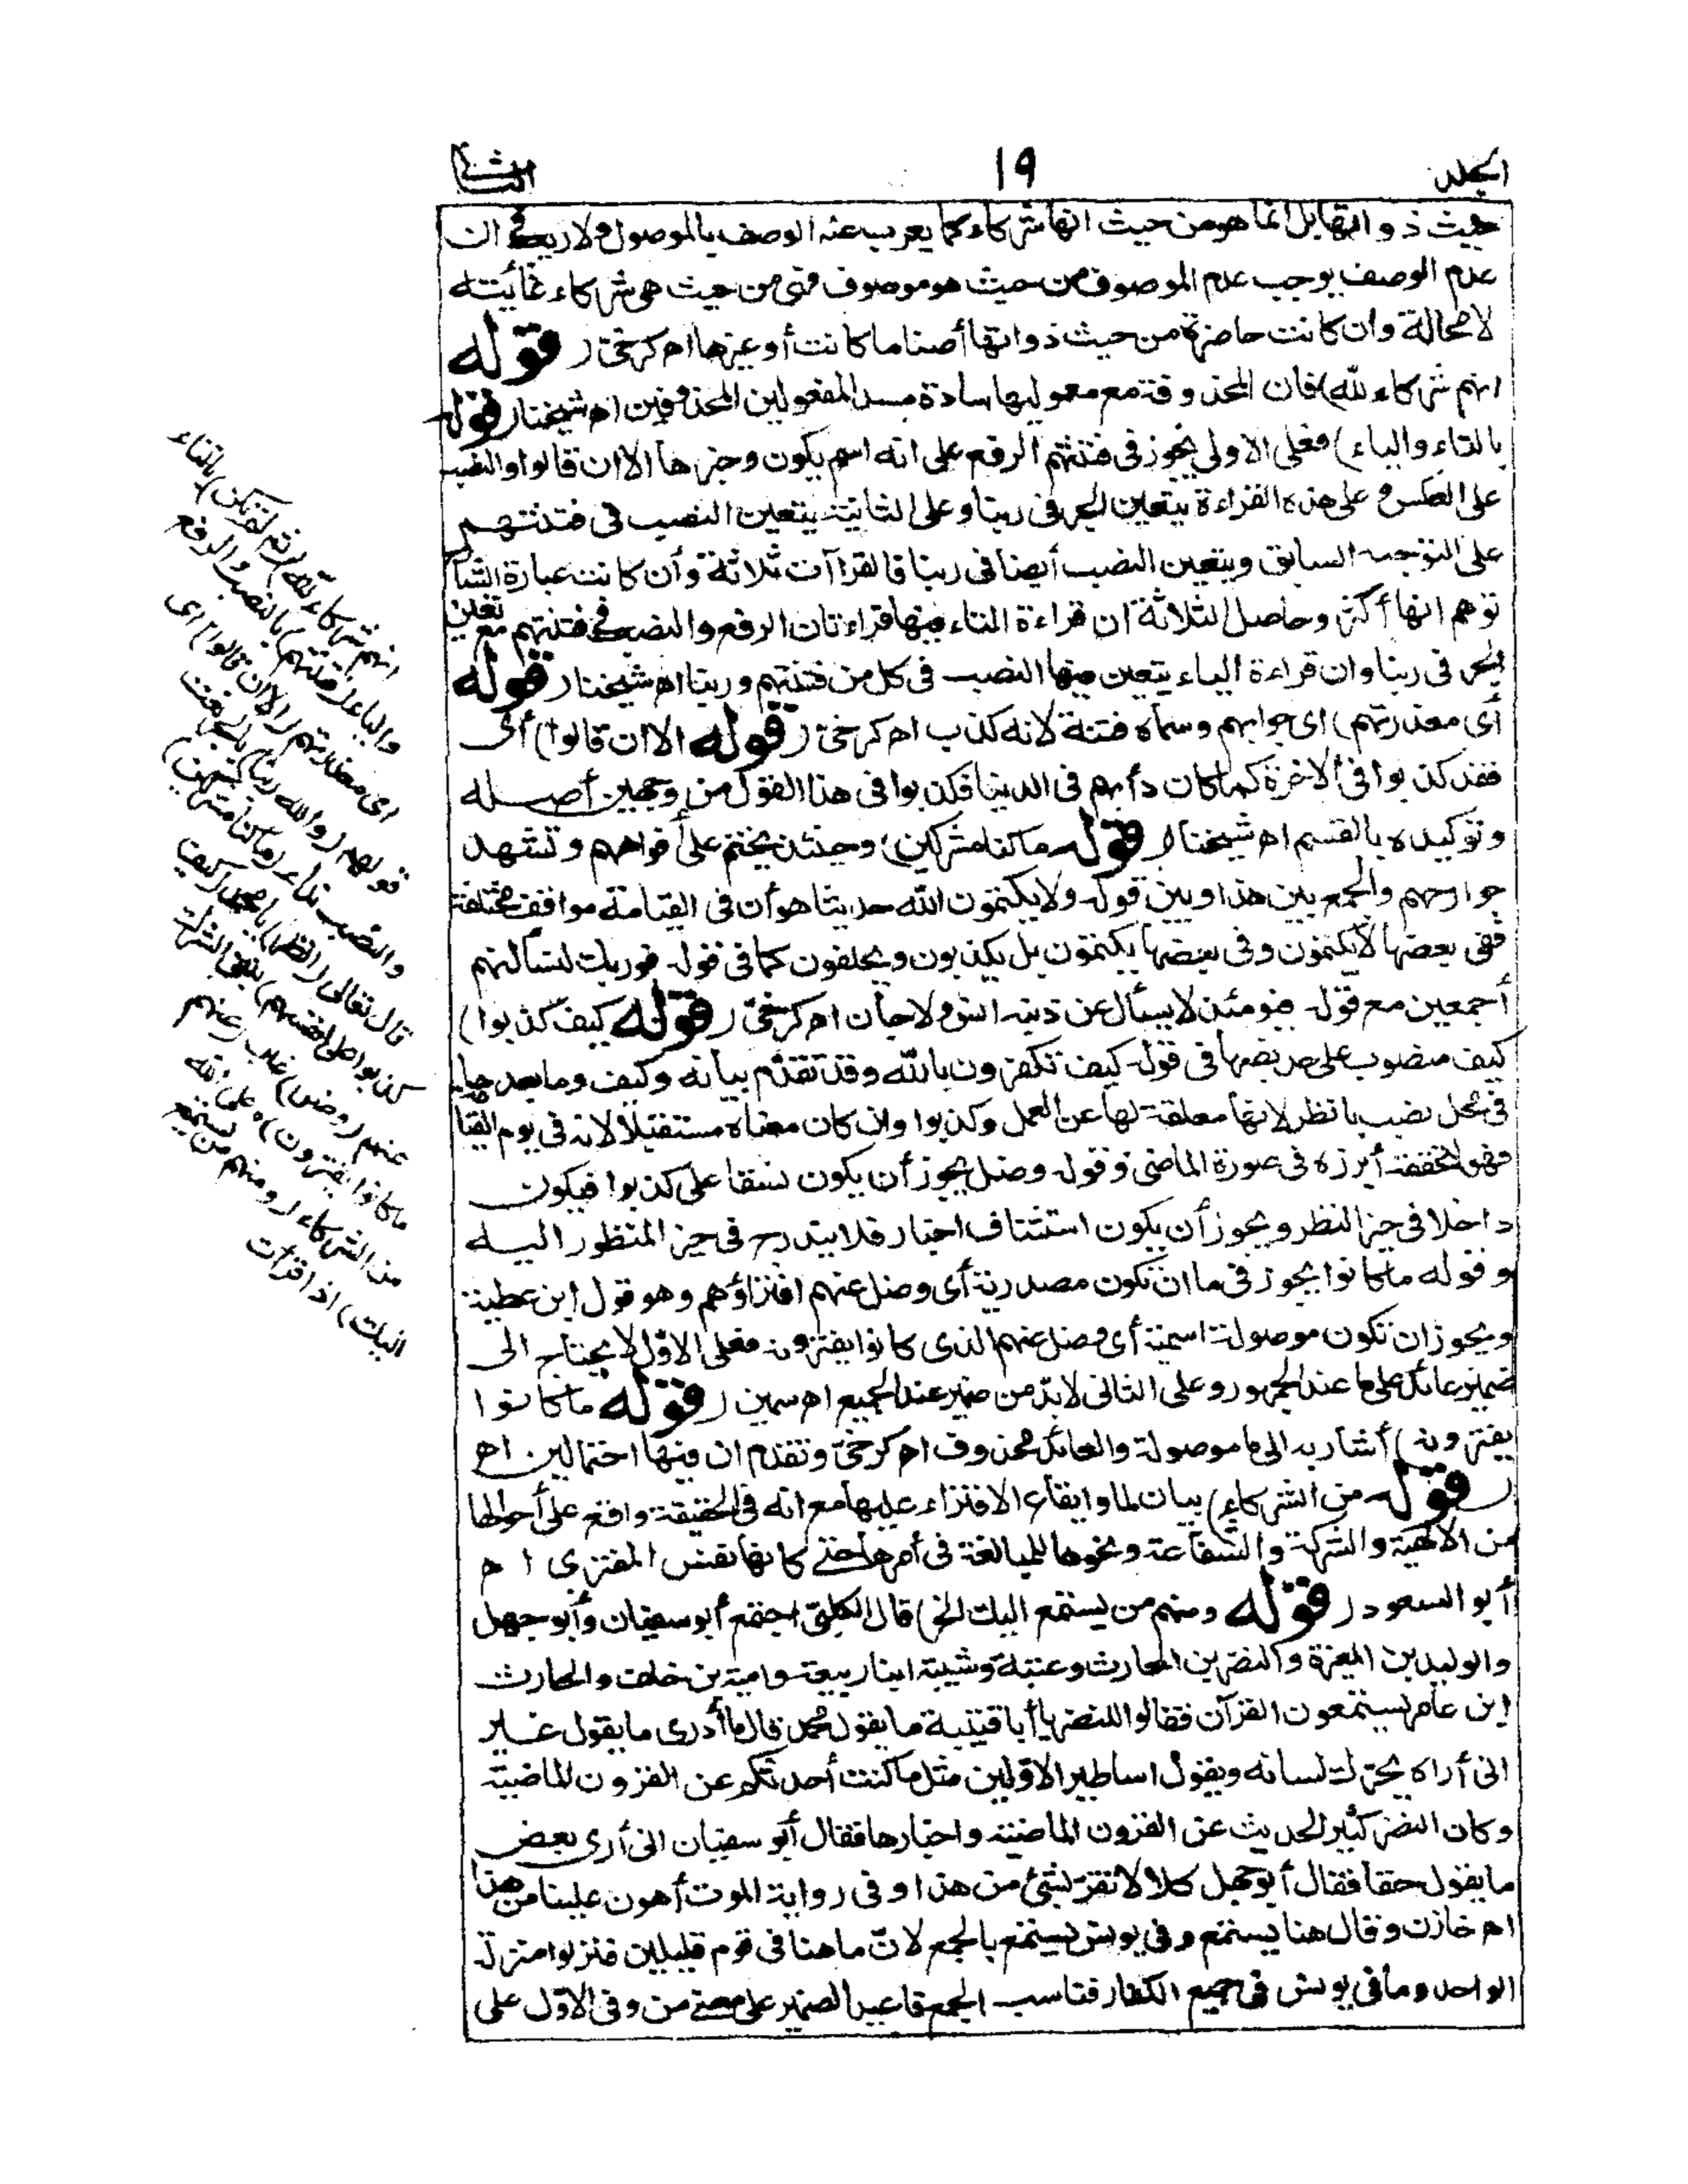 الجلد ١٩ الثانى
حيث ذواتها بل انما هو من حيث انها شركاء كما يعرب عنه الوصف بالموصول ولا ريب فى ان
عدم الوصف يوجب عدم الموصوف من حيث هو موصوف فهى من حيث هى شركاء غائبته
لا محالة وان كانت حاضرة من حيث ذواتها أصناما كانت أو غيرها اه كرخى ( قوله
انهم شركاء لله) فان المحذوفة مع معموليها سادة مسد المفعولين المحذوفين اه شيخنا ( قوله
بالتاء والياء) فعلى الاولى يجوز فى فتنتهم الرفع على انه اسم يكون وخبرها الا ان قالوا والنصب
على العكس وعلى هذه القراءة يتعين الجر فى ربنا وعلى الثانية يتعين النصب فى فتنتهم
على التوجيه السابق ويتعين النصب أيضا فى ربنا فالقراآت ثلاثة وأن كانت عبارة الشا
توهم انها أكثر وحاصل الثلاثة ان قراءة التاء فيها قراءتان الرفع والنصب فى فتنتهم مع تعين
الجر فى ربنا وان قراءة الياء يتعين فيها النصب فى كل من فتنتهم وربنا اه شيخنا ( قوله
أى معذرتهم) اى جوابهم وسماه فتنة لانه كذب اه كرخى ( قوله الا ان قالوا) أى
فقد كذبوا فى الاخرة كما كان دأبهم فى الدنيا فكذبوا فى هذا القول من وجهين أصله
وتوكيده بالقسم اه شيخنا ( قوله ما كنا مشركين) وحينئذ يختم على أفواههم وتشهد
جوارحهم والجمع بين هذا وبين قوله ولا يكتمون الله حديثا هو أن فى القيامة مواقف مختلفة
ففى بعضها لا يكتمون وفى بعضها يكتمون بل يكذبون ويحلفون كما فى قوله فوربك لنسألنهم
أجمعين مع قوله فيومئذ لا يسأل عن ذنبه انس ولا جان اه كرخى ( قوله كيف كذبوا)
كيف منصوب على حد نصبها فى قوله كيف تكفرون بالله وقد تقدم بيانه وكيف وما بعدها
فى محل نصب بانظر لانها معلقة لها عن العمل وكذبوا وان كان معناه مستقبلا لانه فى يوم القيا
فهو لتحققه أبرزه فى صورة الماضى وقوله وضل يجوز أن يكون نسقا على كذبوا فيكون
داخلا فى حيز النظر ويجوز أن يكون استئناف اخبار فلا يندرج فى حيز المنظور اليه
وقوله ما كانوا يجوز فى ما ان تكون مصدرية أى وضل عنهم افتراؤهم وهو قول ابن عطية
ويجوز ان تكون موصولة اسمية أى وضل عنهم الذى كانوا يفترونه فعلى الاول لا يحتاج الى
ضمير عائد على ما عند الجمهور وعلى الثانى لابد من ضمير عند الجميع اه سمين ( قوله ما كانوا
يفترونه) أشار به الى ما موصولة والعائد محذوف اه كرخى وتقدم ان فيها احتمالين اه
( قوله من الشركاء) بيان لما وايقاع الافتراء عليها مع انه فى الحقيقة واقع على أحوالها
من الالهية والشركة والشفاعة ونحوها للمبالغة فى أمرها حتى كانها نفس المفترى اه
أبو السعود ( قوله ومنهم من يستمع اليك الخ) قال الكلبى اجتمع أبو سفيان وأبو جهل
والوليد بن المغيرة والنضر بن الحارث وعتبة وشيبة ابنا ربيعة وامية بن خلف والحارث
ابن عامر يستمعون القرآن فقالوا للنضر يا أبا قتيبة ما يقول محمد قال ما أدرى ما يقول غير
انى أراه يحرك لسانه ويقول اساطير الاولين مثل ما كنت أحدثكم عن القرون الماضية
وكان النضر كثير الحديث عن القرون الماضية واخبارها فقال أبو سفيان انى أرى بعض
ما يقول حقا فقال أبو جهل كلا لا تقر بشئ من هذا وفى رواية الموت أهون علينا من هذا
اه خازن وقال هنا يستمع وفى يونس يستمع بالجمع لان ما هنا فى قوم قليلين فنزلوا منزلة
الواحد وما فى يونس فى جميع الكفار فناسب الجمع فاعيد الضمير على معنى من وفى الاول على
انهم شركاء لله (ثم لم تكن) بالتاء
والياء (فتنتهم) بالنصب والرفع
اى معذرتهم (الا ان قالوا) اى
قولهم (والله ربنا) بالجر نعت
والنصب نداء (ما كنا مشركين)
قال تعالى (انظر) يا محمد (كيف
كذبوا على انفسهم) بنفى الشرك
عنهم (وضل) غاب (عنهم
ما كانوا يفترون) ه على الله
من الشركاء (ومنهم من يستمع
اليك) اذا قرأت